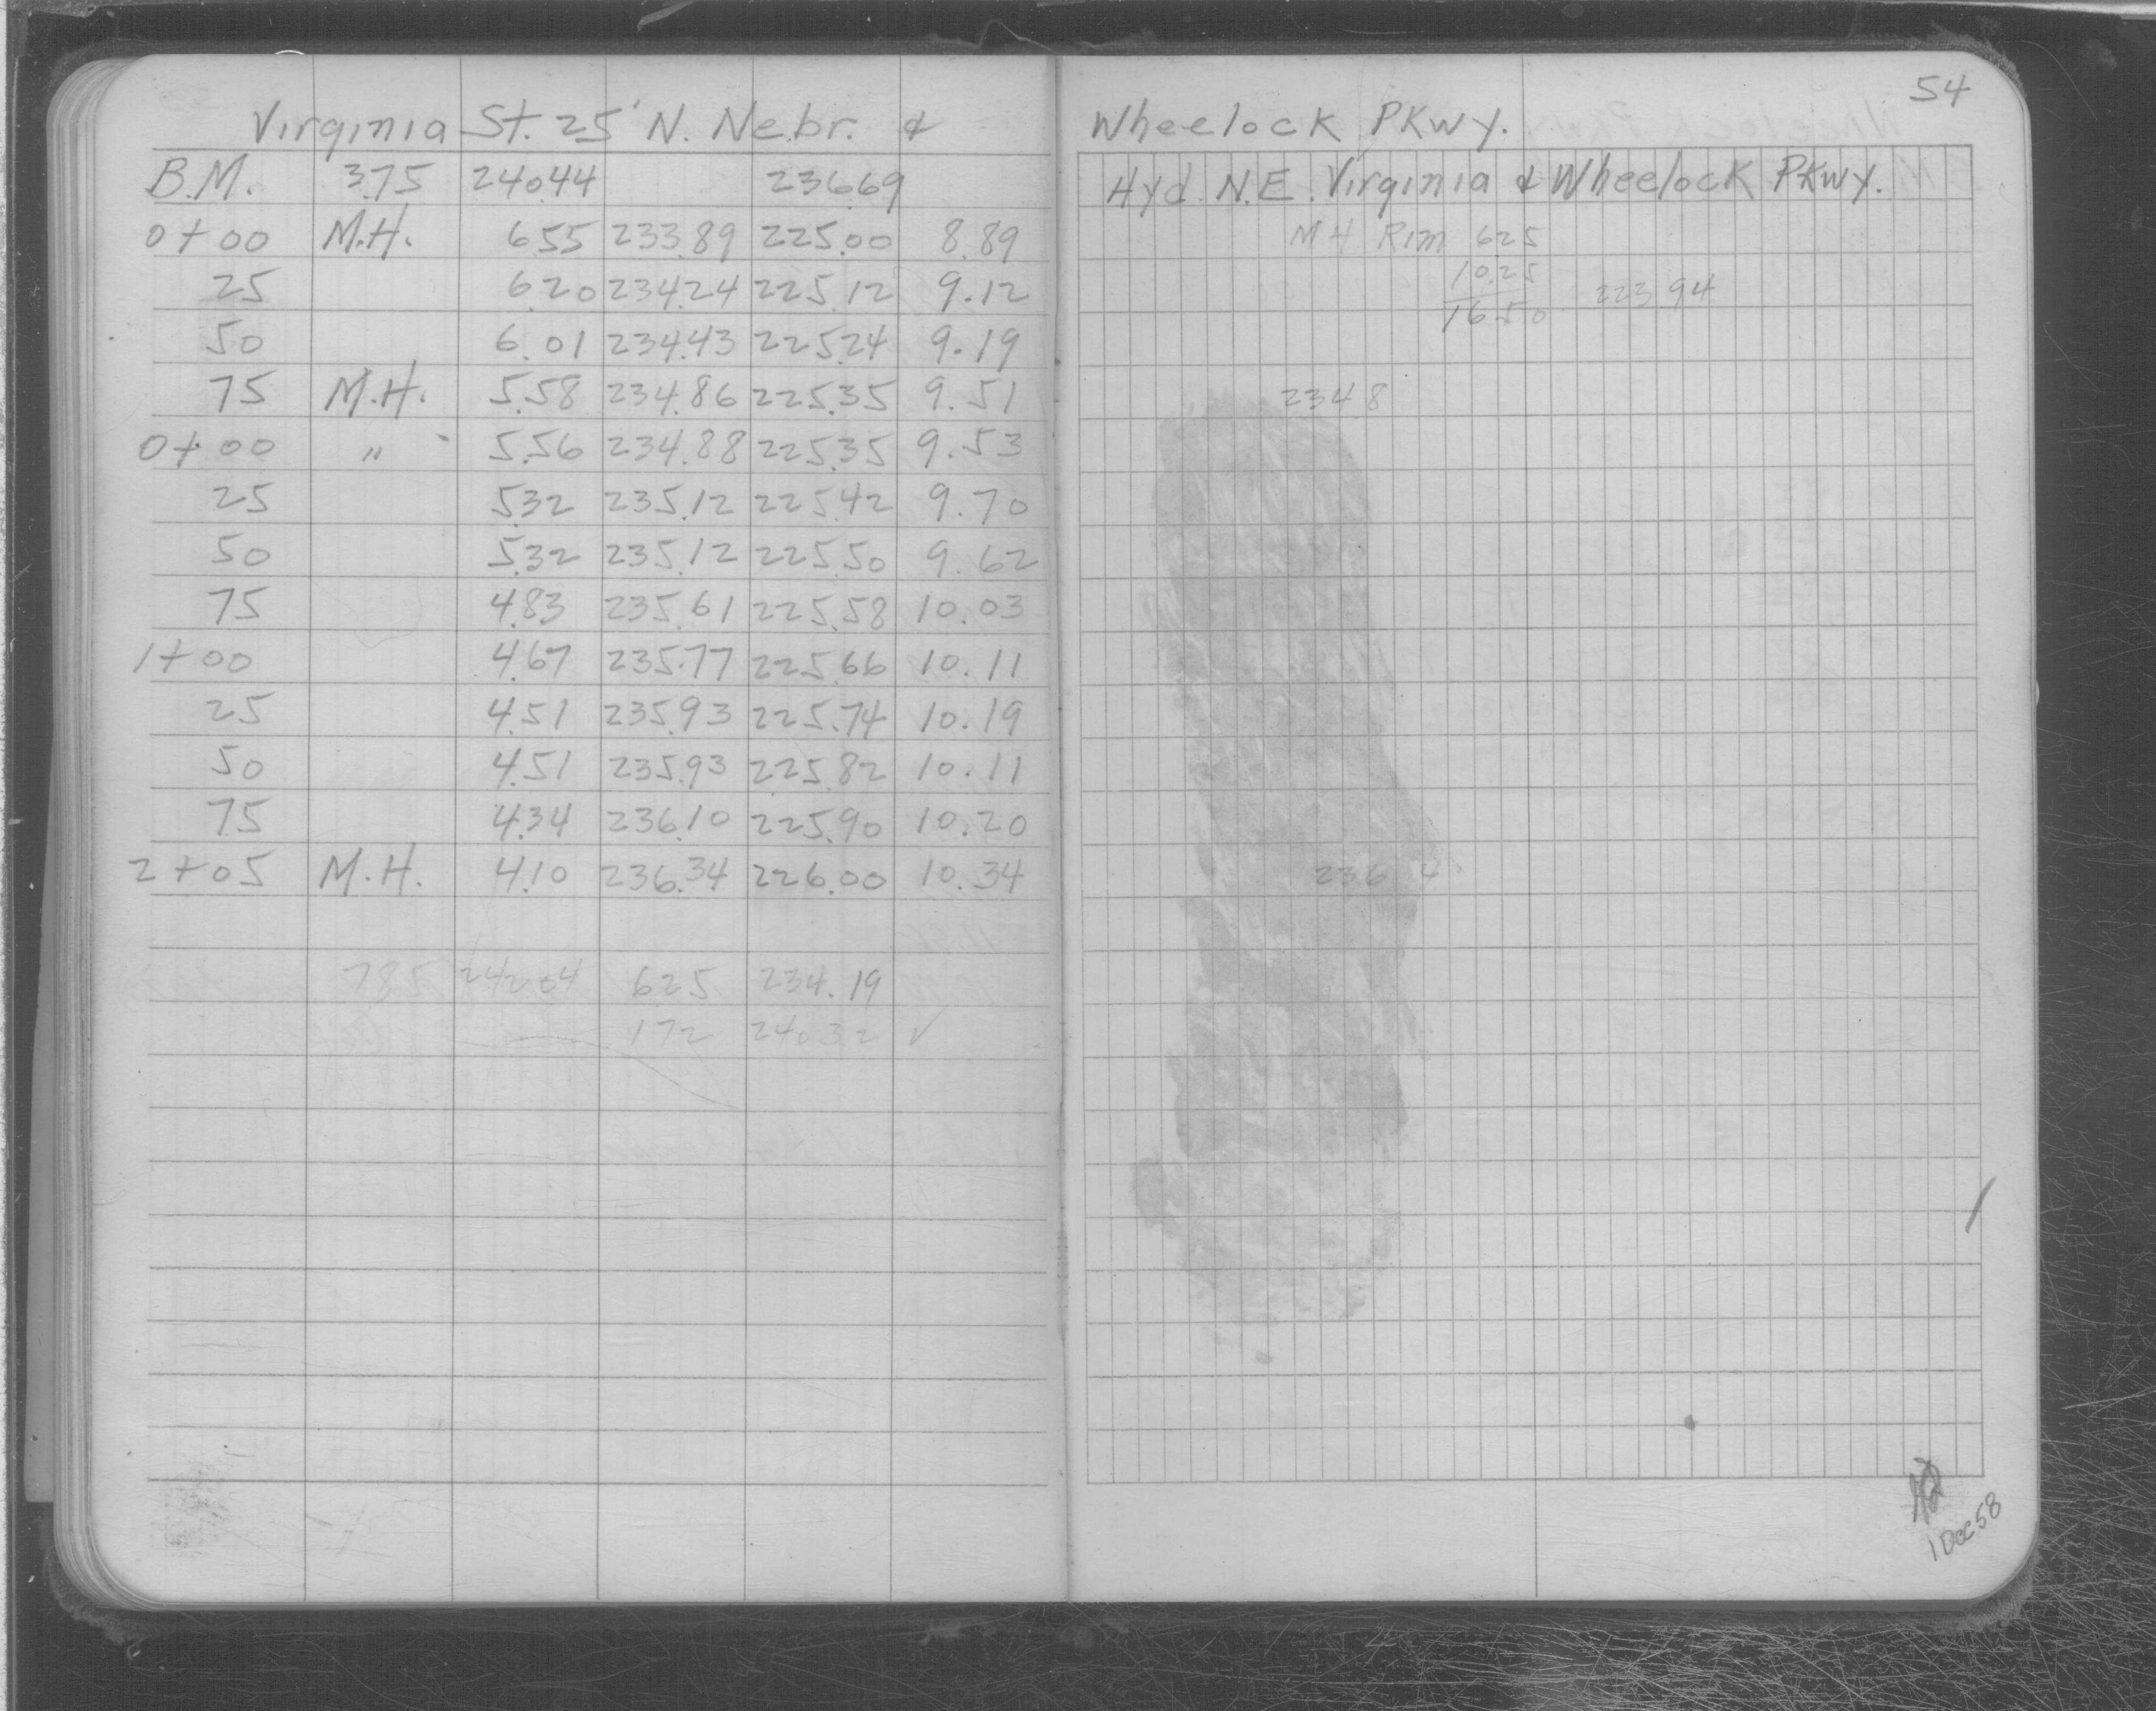 54
Virginia St. 25' N. Nebr. & Wheelock PKwy.
B.M. 3.75 240.44 236.69 Hyd. N.E. Virginia & Wheelock PKwy.
0+00 M.H. 6.55 233.89 225.00 8.89 MH Rim 625
25 6.20 234.24 225.12 9.12 10.25
50 6.01 234.43 225.24 9.19 16.50 223.94
75 M.H. 5.58 234.86 225.35 9.51 234.8
0+00 " 5.56 234.88 225.35 9.53
25 5.32 235.12 225.42 9.70
50 5.32 235.12 225.50 9.62
75 4.83 235.61 225.58 10.03
1+00 4.67 235.77 225.66 10.11
25 4.51 235.93 225.74 10.19
50 4.51 235.93 225.82 10.11
75 4.34 236.10 225.90 10.20
2+05 M.H. 4.10 236.34 226.00 10.34 236.4
785 242.04 625 234.19
172 240.32 ✓
1 Dec 58